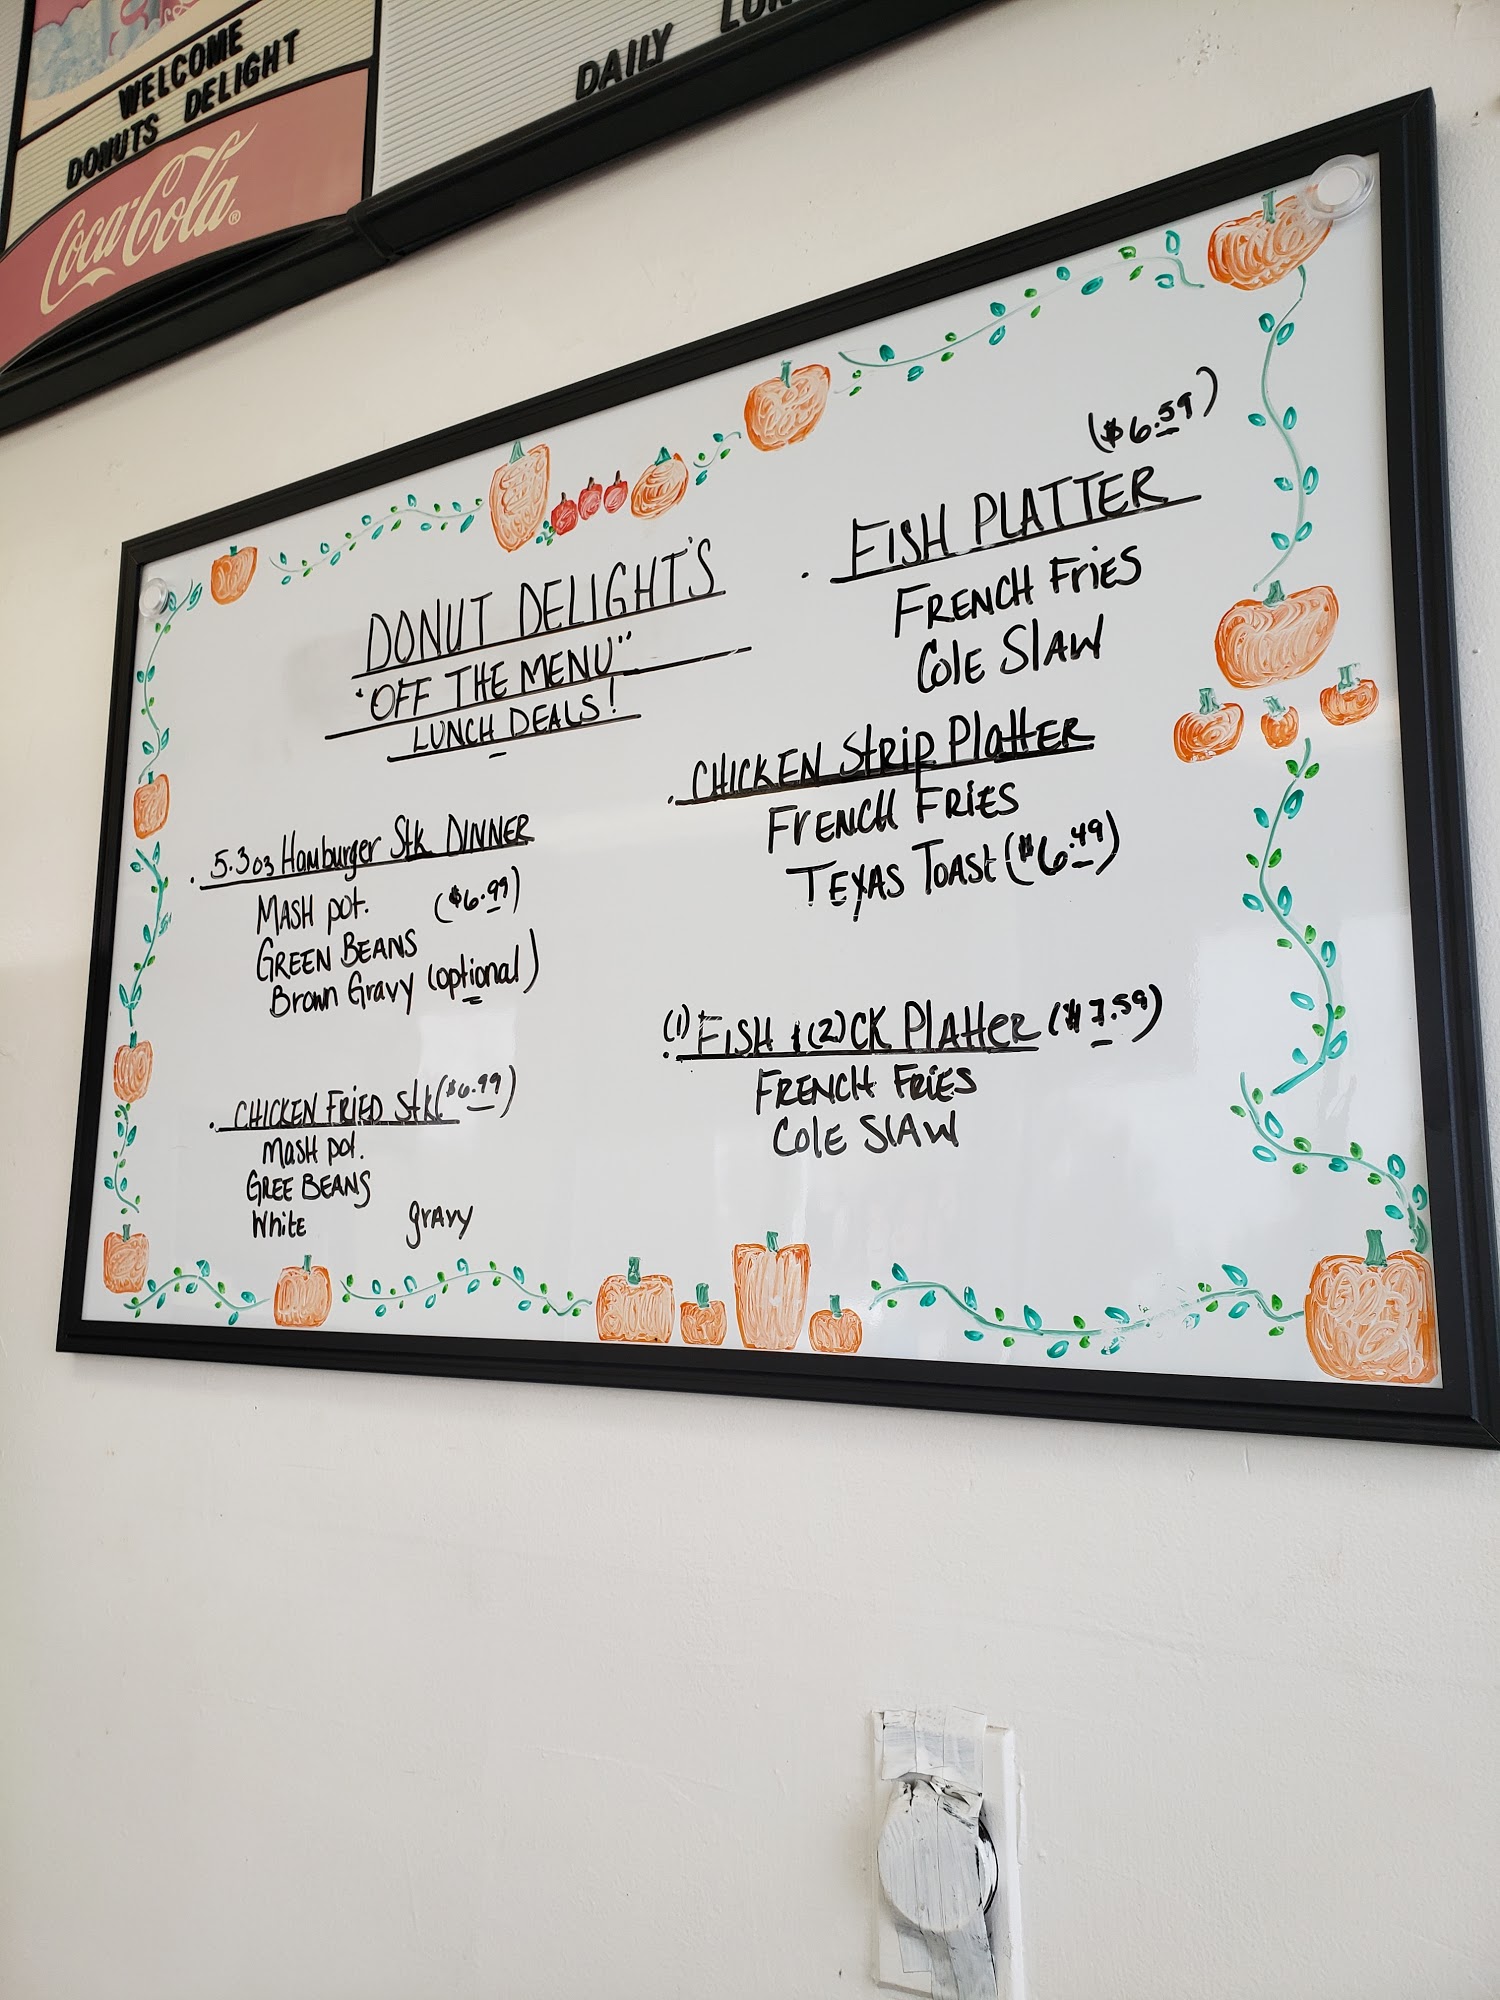 WELCOME
DONUTS DELIGHT
Coca-Cola®
DAILY
DONUT DELIGHT'S
"OFF THE MENU"
LUNCH DEALS!
. 5.3oz Hamburger Stk DINNER
MASH pot. ($6.99)
GREEN BEANS
Brown Gravy (optional)
. CHICKEN FRIED Stk ($6.99)
MASH pot.
GREE BEANS
White gravy
($6.59)
. FISH PLATTER
FRENCH FriES
ColE SlAW
. CHICKEN Strip PlattER
FrENCH FRiES
TEXAS TOASt ($6.49)
. (1) FISH & (2) CK PlAttER ($7.59)
FRENCH FRiES
ColE SlAW